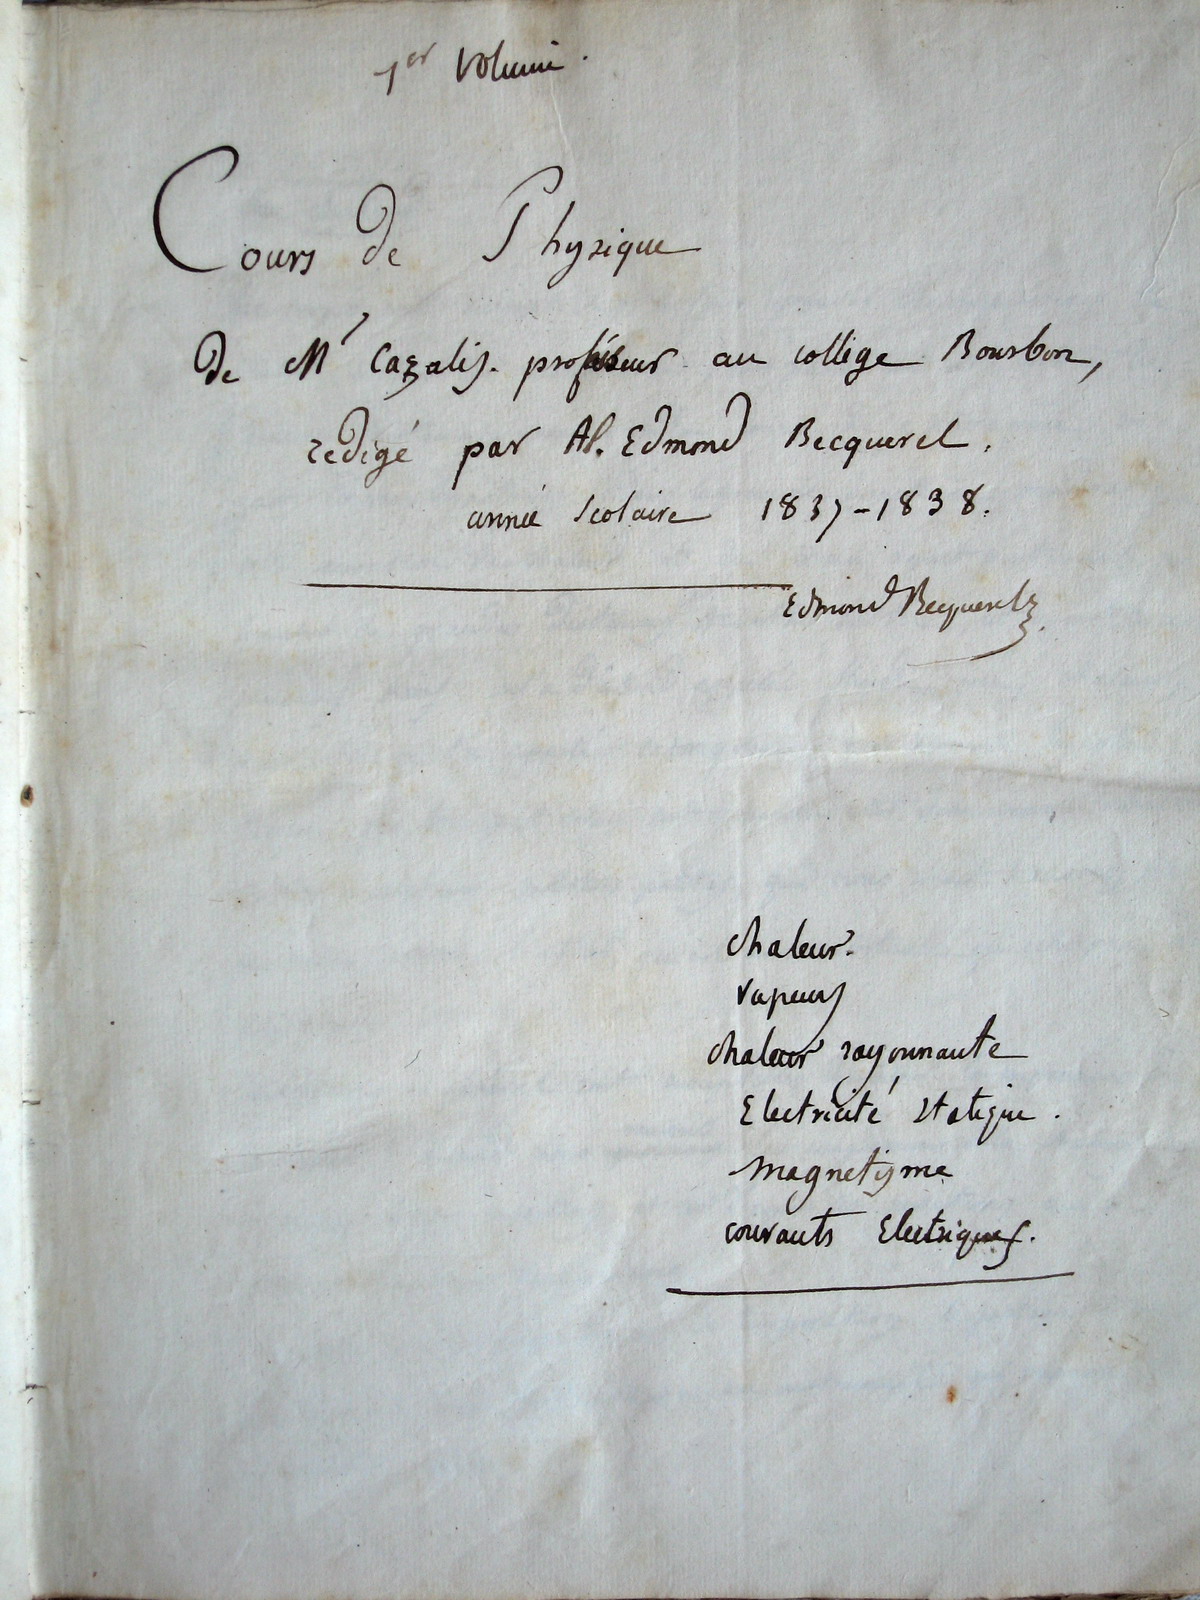 1er volume.
Cours de Physique
de Mr Cazalis. professeur au collège Bourbon,
redigé par Al. Edmond Becquerel.
année scolaire 1837-1838.
Edmond Becquerel
chaleur.
vapeurs
chaleur rayonnante
Electricité statique.
magnetisme
courants Electriques.